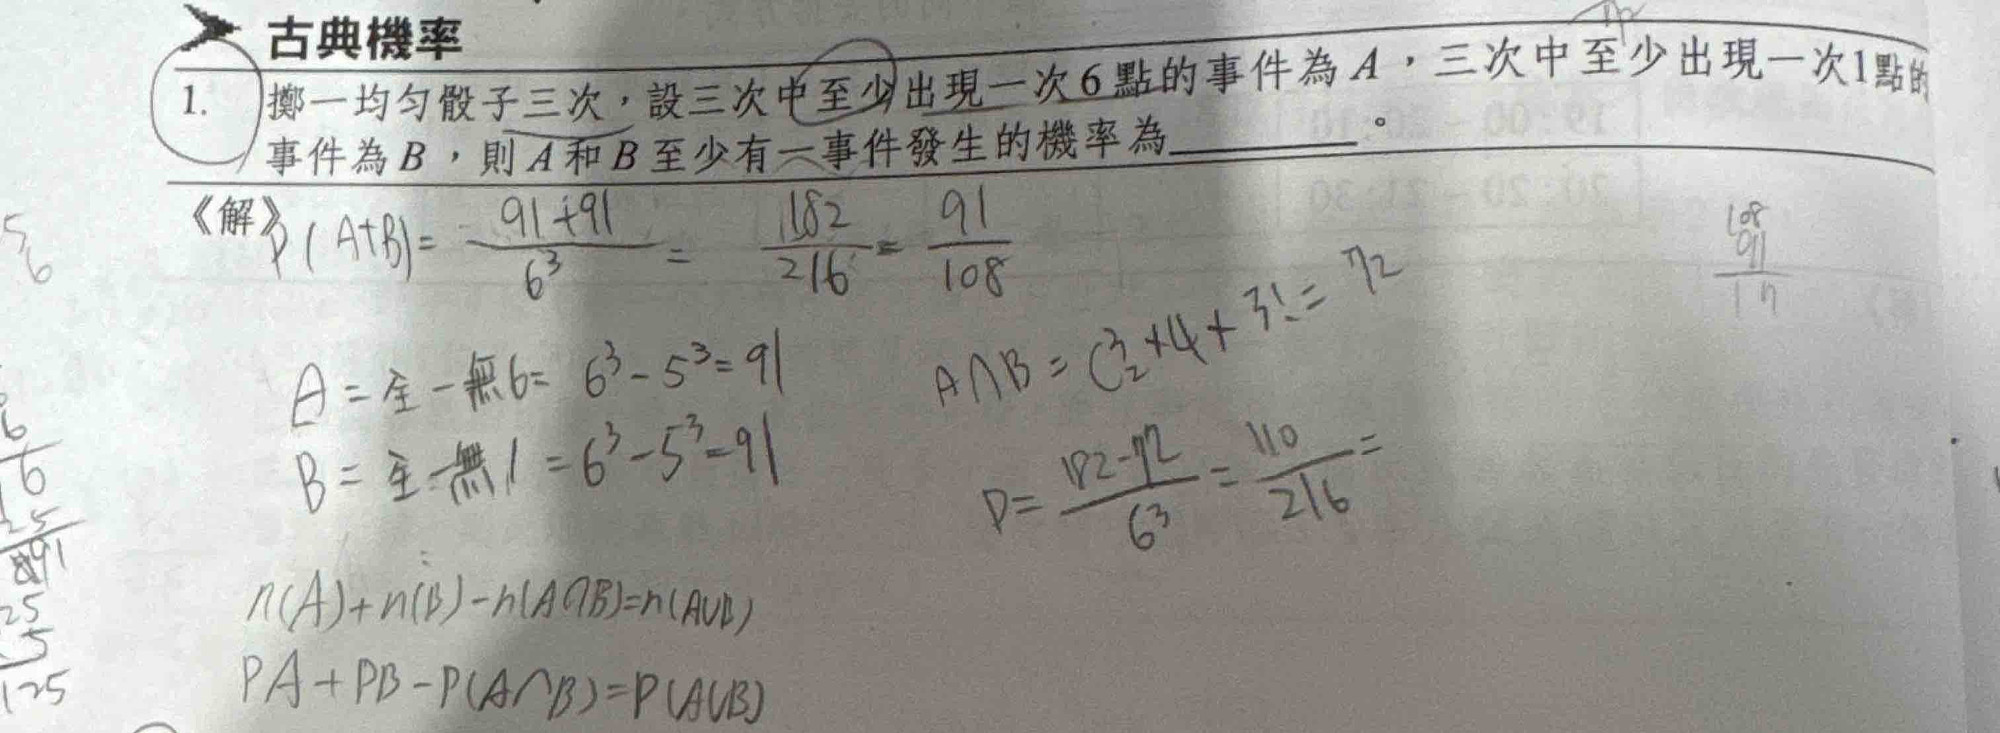 古典機率
1. 擲一均勻骰子三次，設三次中至少出現一次6點的事件為A，三次中至少出現一次1點的
事件為B，則A和B至少有一事件發生的機率為＿＿＿＿。
《解》P(A+B) = 91+91/6³ = 182/216 = 91/108
A = 全 - 無6 = 6³ - 5³ = 91
B = 全 - 無1 = 6³ - 5³ = 91
A∩B = C³₂ + 4 + 3! = 72
P = 182-72/6³ = 110/216 =
n(A)+n(B)-n(A∩B)=n(A∪B)
PA+PB-P(A∩B)=P(A∪B)
108
91
17
5
6
6
6
25
91
25
5
125